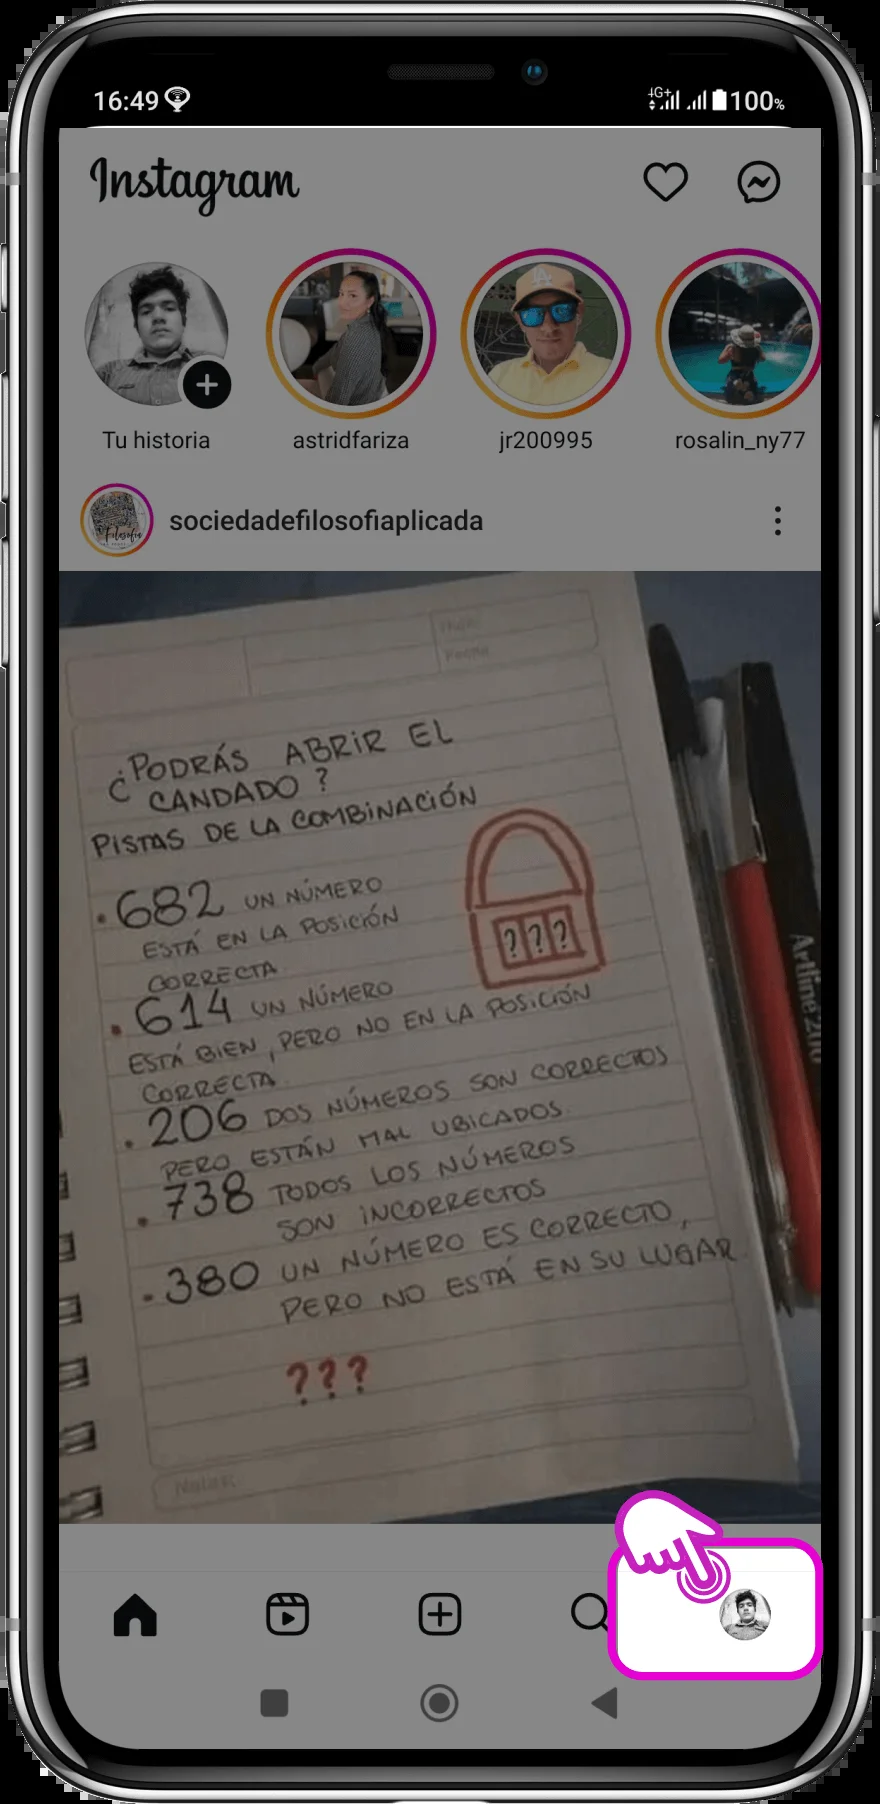 16:49
4G+ 100%
Instagram
Tu historia
astridfariza
jr200995
rosalin_ny77
Filosofía
sociedadefilosofiaplicada
Fecha
¿PODRÁS ABRIR EL
CANDADO?
PISTAS DE LA COMBINACIÓN
???
• 682 UN NÚMERO
ESTÁ EN LA POSICIÓN
CORRECTA
• 614 UN NÚMERO
ESTÁ BIEN, PERO NO EN LA POSICIÓN
CORRECTA
• 206 DOS NÚMEROS SON CORRECTOS
PERO ESTÁN MAL UBICADOS
• 738 TODOS LOS NÚMEROS
SON INCORRECTOS
• 380 UN NÚMERO ES CORRECTO,
PERO NO ESTÁ EN SU LUGAR
???
Artline 210